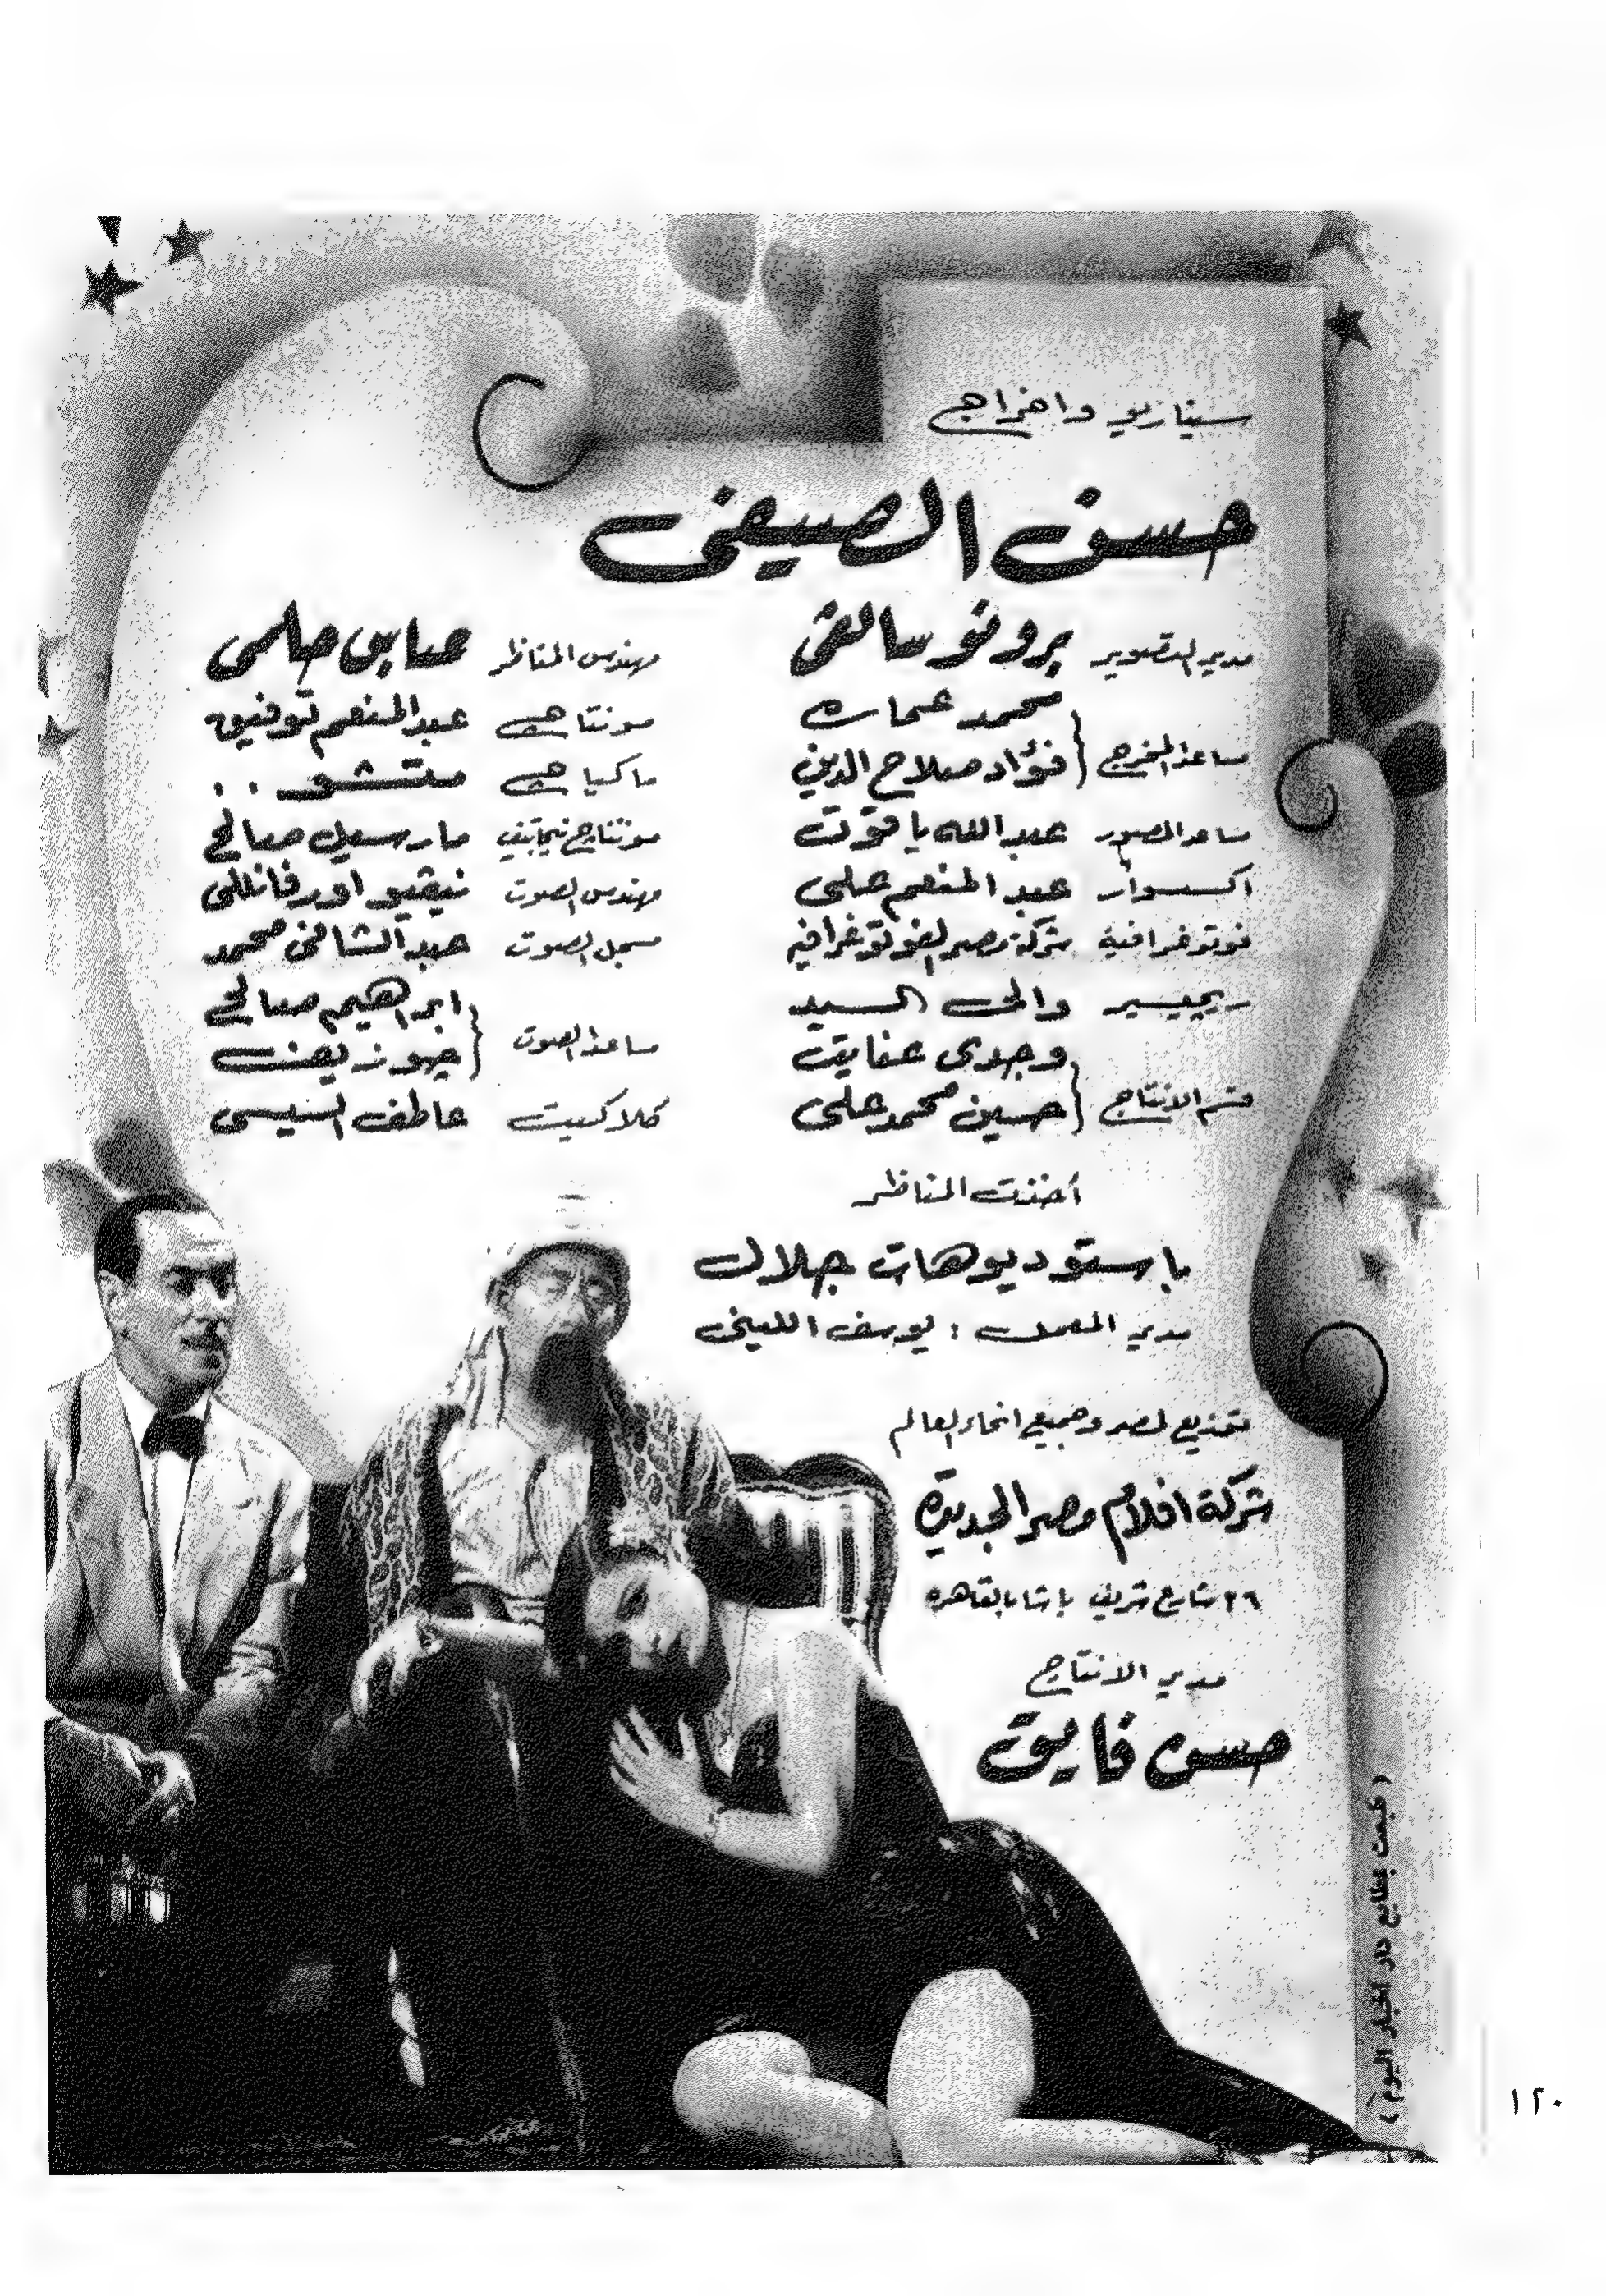 سيناريو واخراج
حسن الصيفى
مدير التصوير برونو سالفى
مساعدا المخرج محمد عماره
فؤاد صلاح الدين
مساعد المصور عبد الله ياقوت
اكسسوار عبد المنعم على
فوتوغرافية شركة مصر الفوتوغرافيه
ريجيسير والى السيد
قسم الانتاج وجدى عنايت
حسين محمد على
مهندس المناظر عباس حلمى
مونتاج عبد المنعم توفيق
ماكياج متشو ..
مونتاج نيجاتيف مارسيل صالح
مهندس الصوت نيفيو اورفانللى
مسجل الصوت عبد الشافى محمد
مساعدا الصوت ابراهيم صالح
جوزيف
كلاكيت عاطف السيسى
أخذت المناظر
باستوديوهات جلال
مدير المعمل : يوسف الليثى
توزيع لمصر وجميع انحاء العالم
شركة افلام مصر الجديدة
٢٦ شارع شريف باشا بالقاهره
مدير الانتاج
حسن فايق
( طبعت بمطابع دار اخبار اليوم )
١٢٠